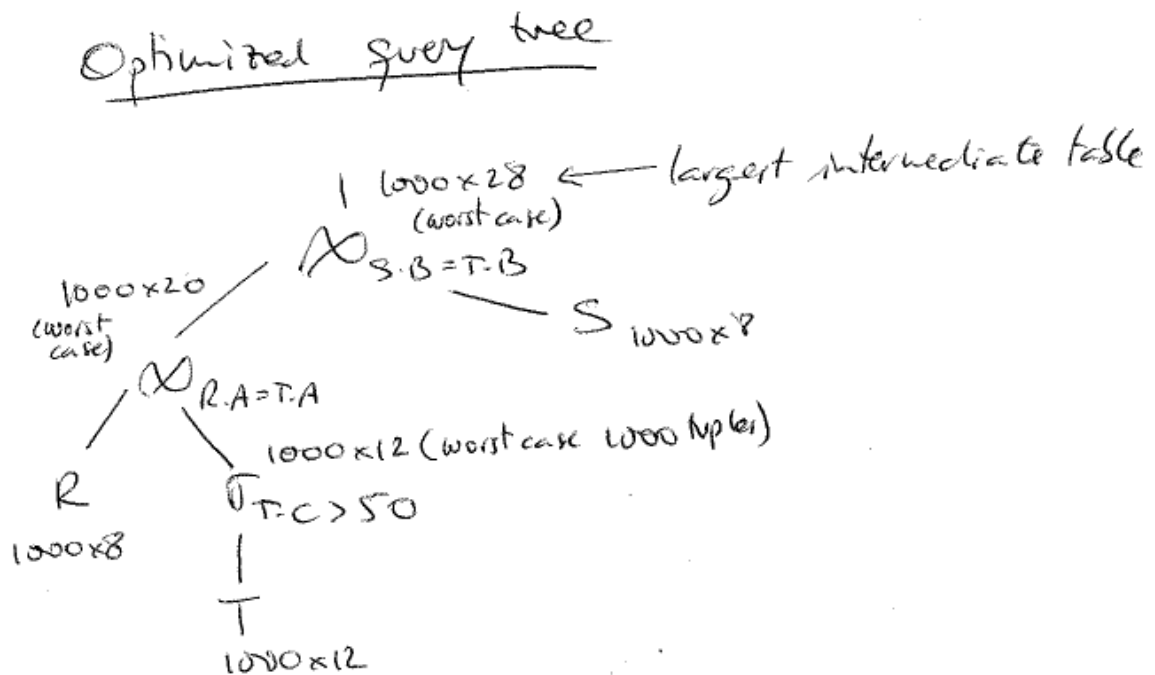 Optimized query tree
1000×28 ← largest intermediate table
(worst case)
⋈ S.B=T.B
1000×20
(worst
case)
S 1000×8
⋈ R.A=T.A
1000×12 (worst case 1000 tuples)
R
σ T.C>50
1000×8
T
1000×12